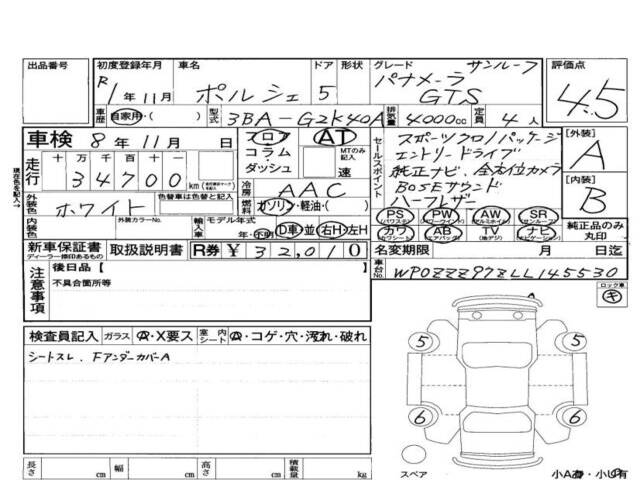 出品番号 初度登録年月 車名 ドア 形状 グレード サンルーフ 評価点
R1年11月 ポルシェ 5 パナメーラ GTS 4.5
車歴 自家用・( ) 型式 3BA-G2K40A 排気量 4000cc 定員 4人
車検 8年11月 日 フロア AT スポーツクロノパッケージ [外装]
走行 十 万 千 百 十 コラム MTのみ記入 セールスポイント エントリードライブ A
34700km ダッシュ 速 純正ナビ、全方位カメラ
現在色を記入→ 冷房 AAC BOSEサウンド [内装]
外装色 ホワイト 色替車は色替と記入 燃料 ガソリン・軽油・( ) ハーフレザー B
内装色 外装カラーNo. 輸入車 モデル年式 年・不明 D車 並 右H・左H PS (パワステ) PW (パワーウインドウ) AW (アルミホイール) SR (サンルーフ)
カワ (カワシート) AB (エアバッグ) TV (地デジ) ナビ (ナビゲーション) 純正品のみ丸印
新車保証書 ディーラー捺印あるもの 取扱説明書 R券 ¥32,010 名変期限 月 日迄
注意事項 後日品[ ] 車台No. WP0ZZZ97ZLL145530
不具合箇所等 ロック車 キ
検査員記入 ガラス A・X要ス 室内シート A・コゲ・穴・汚れ・破れ
シートスレ、FアンダーカバーA
5 5
6 6
長さ cm 幅 cm 高さ cm 積載量 kg
スペア 小A有・小U有